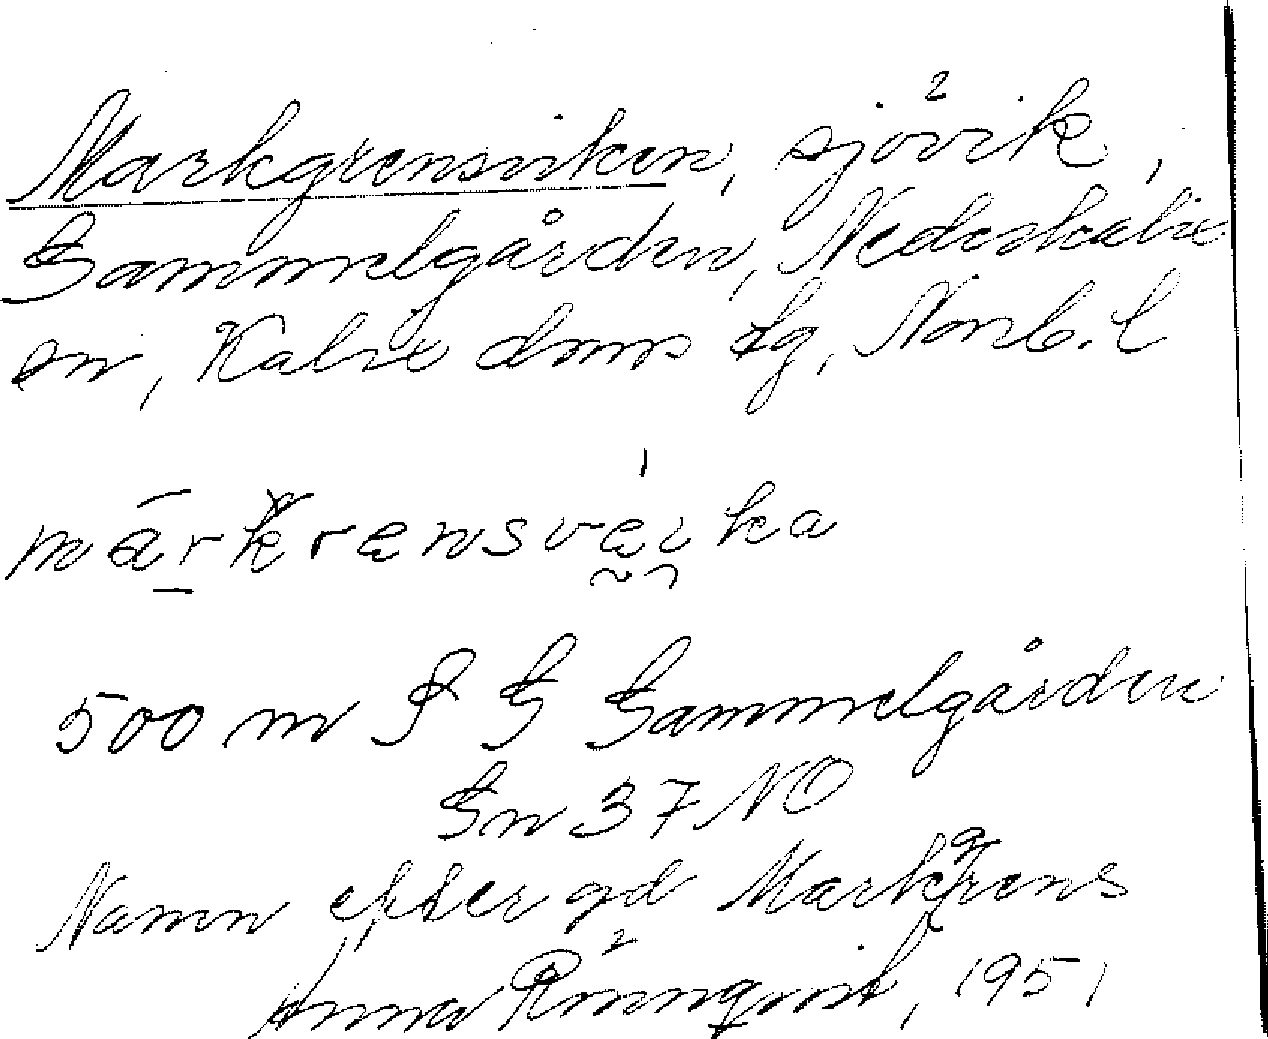 Markgrensviken, sjövik,
Sammelgården, Nederkalix
sn, Kalix dms tg, Norrb. l
märkrensvæika
500 m S S Sammelgården
Sn 37 NO
Namn efter gd Markgrens
Anna Rönnqvist, 1951